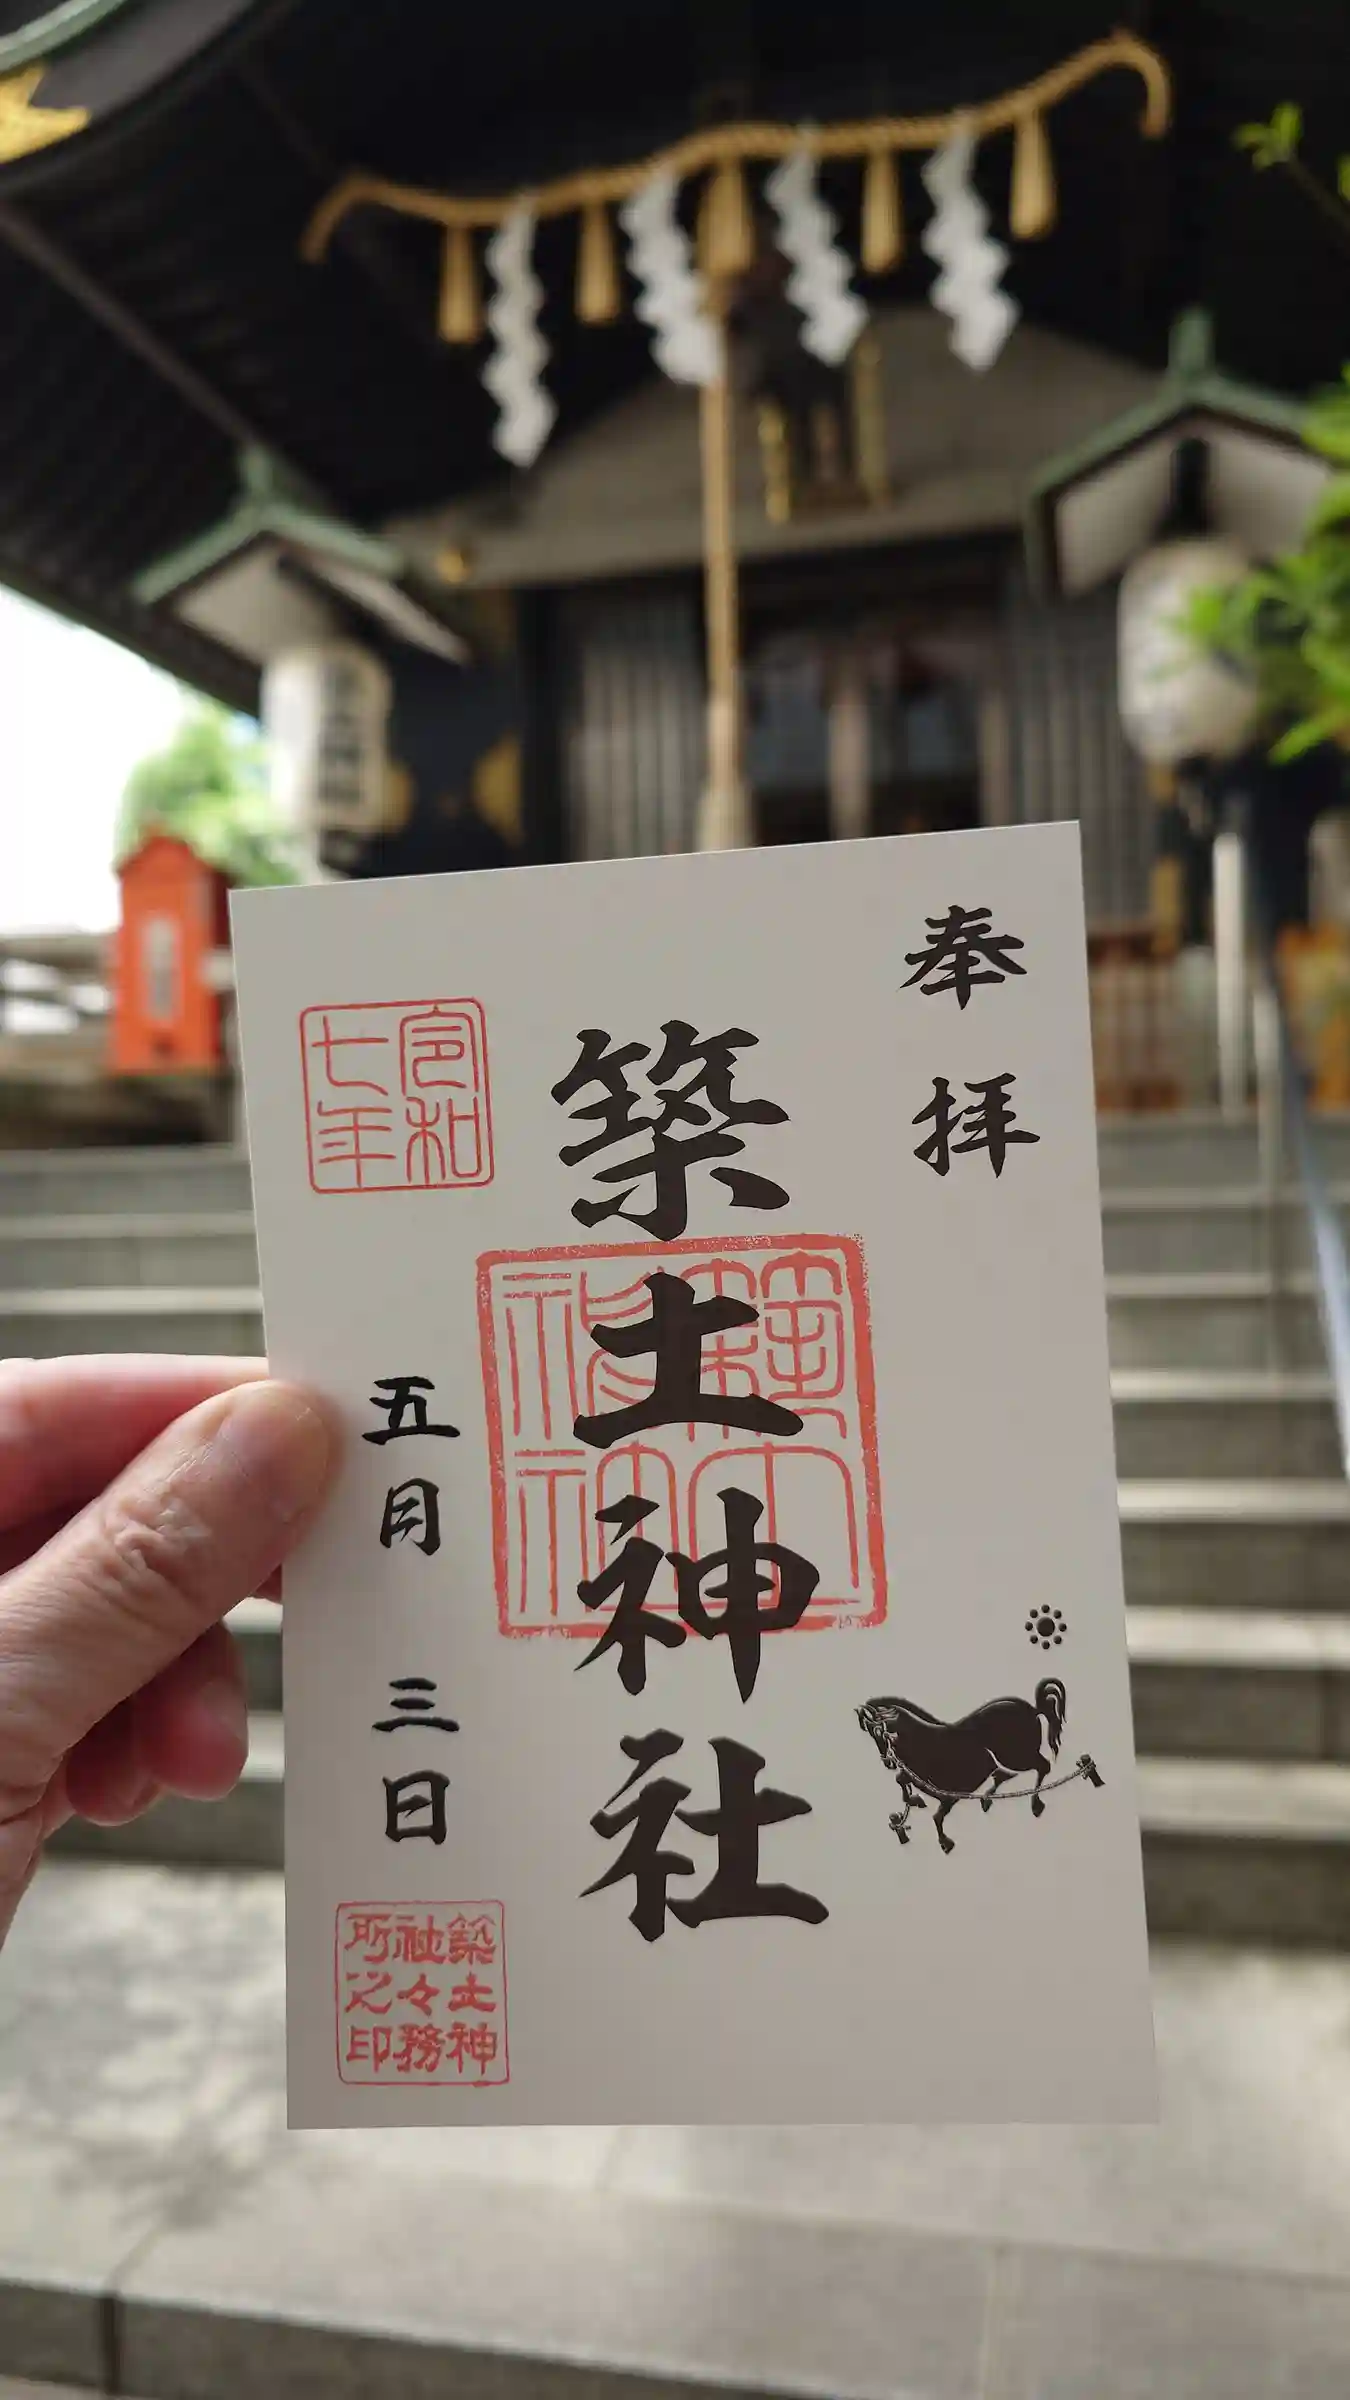 奉拝
築土神社
築土神社
令和
七年
五月三日
築土神
社々務
所之印